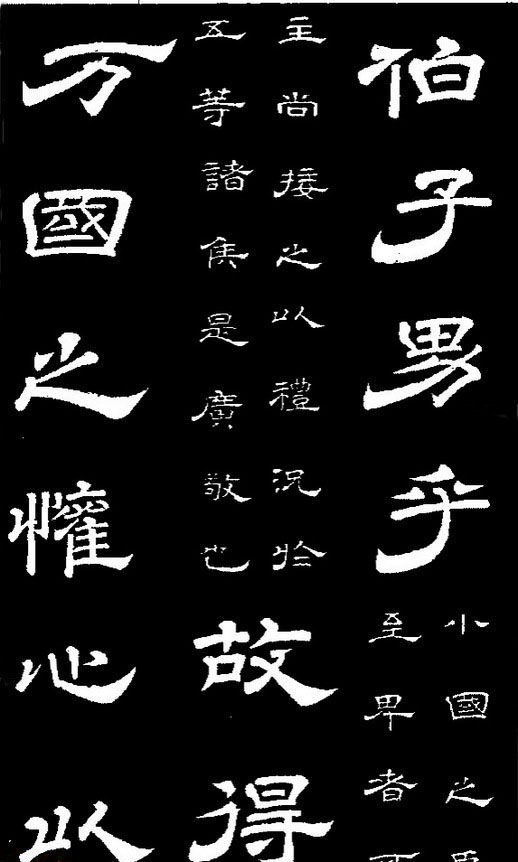 伯子男乎
小國之
至卑者
主尚接之以禮況於
五等諸侯是廣敬也
故得
万國之懽心以